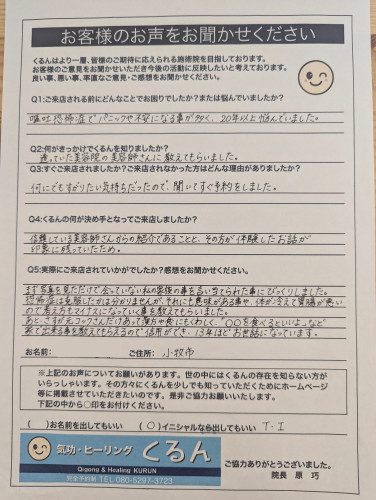 お客様のお声をお聞かせください
くるんはより一層、皆様のご期待に応えられる施術院を目指しております。
お客様のご意見をお聞かせいただき今後の活動に反映したいと考えております。
良い事、悪い事、率直なご意見・ご感想をお聞かせください。
Q1:ご来店される前にどんなことでお困りでしたか?または悩んでいましたか?
嘔吐恐怖症でパニックや不安になる事が多く、20年以上悩んでいました。
Q2:何がきっかけでくるんを知りましたか?
通っていた美容院の美容師さんに教えてもらいました。
Q3:すぐご来店されましたか?ご来店されなかった方はどんな理由がありましたか?
何にでもすがりたい気持ちだったので聞いてすぐ予約をしました。
Q4:くるんの何が決め手となってご来店しましたか?
信頼している美容師さんからの紹介であることと、その方が体験したお話が
印象に残っていたため。
Q5:実際にご来店されていかがでしたか?感想をお聞かせください。
まず写真を見ただけで会っていない私の家族の事を言い当てられた事にびっくりしました。
恐怖症は克服したかは分かりませんが、それにも意味がある事や 体が冷えて胃腸が悪い
ので考え方もマイナスになっていく事を教えてもらいました。
あと、さすが元コックさんだけあって漢方や食にもくわしく、「〇〇を食べるといいよ」など
家で出来る事を教えてもらえるので信用ができ、13年ほどお世話になっています。
お名前: ご住所: 小牧市
※上記のお声についてお願いがあります。世の中にはくるんの存在を知らない方が
いらっしゃいます。その方々にくるんを少しでも知っていただくためにホームページ
等に掲載させていただきたいのです。是非ご協力お願いいたします。
下記の中から〇印をお付けください。
( )お名前を出してもいい (〇)イニシャルなら出してもいい T.I
気功・ヒーリング くるん
Qigong & Healing KURUN
完全予約制 TEL 080-5297-3723
ご協力ありがとうございました。
院長 原 巧